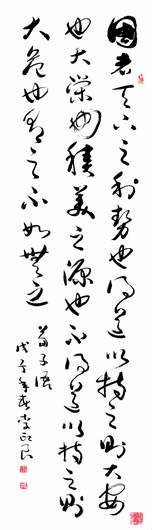 國者天下之利勢也得道以持之則大安
也大榮也積美之源也不得道以持之則
大危也有之不如無之
荀子語
戊子年春李